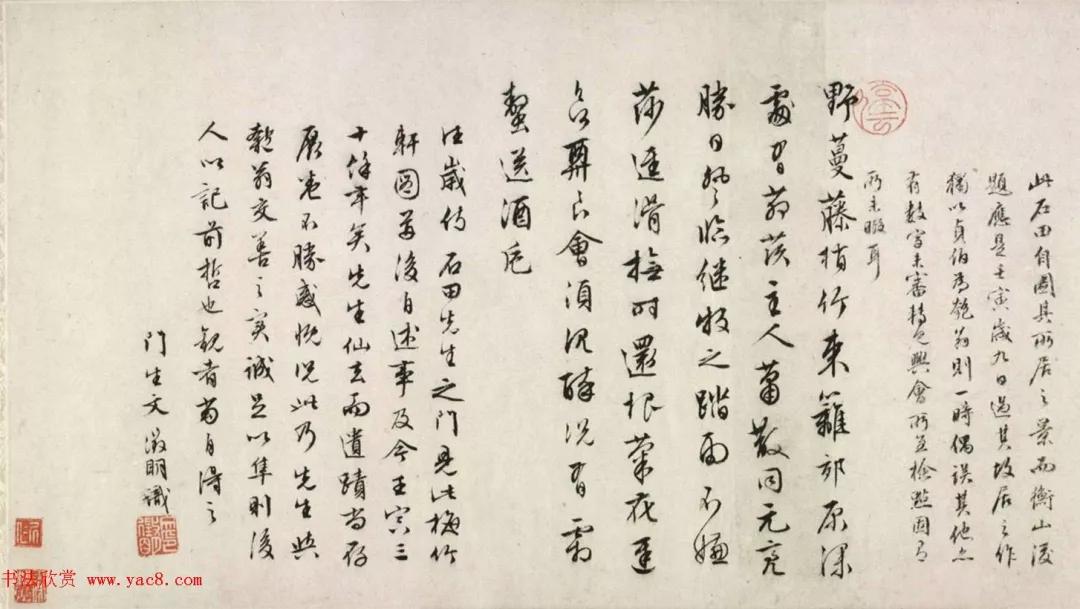 此石田自圖其所居之景而衡山後
題應是壬寅歲九日過其故居之作
獨以貞伯為匏翁則一時偶誤其他亦
有數字未審特乘興會所至檢點固有
所未暇耳
野蔓藤梢竹束籬郊原深
處有茆茨主人蕭散同元亮
勝日登臨繼牧之踏雨不嫌
莎逕滑撫時還恨菊花遲
公羸良會須沉醉況有霜
螯送酒卮
往歲侍石田先生之門見此梅竹
軒圖並後自述事及今壬寅三
十餘年矣先生仙去而遺蹟尚存
展卷不勝感慨況此乃先生與
匏翁交善之實誠足以隼則後
人以記前哲也觀者當自得之
門生文徵明識
书法欣赏 www.yac8.com